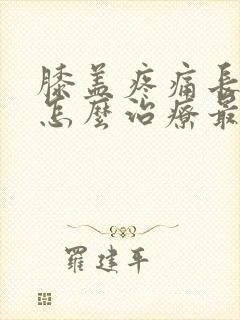 膝盖疼痛長
怎麼治療最
羅建平